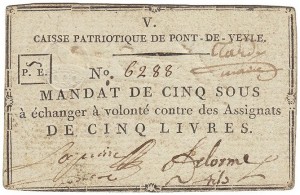 V.
CAISSE PATRIOTIQUE DE PONT-DE-VEYLE.
P. E.
No. 6288
MANDAT DE CINQ SOUS
à échanger à volonté contre des Assignats
DE CINQ LIVRES.
Delorme
fils